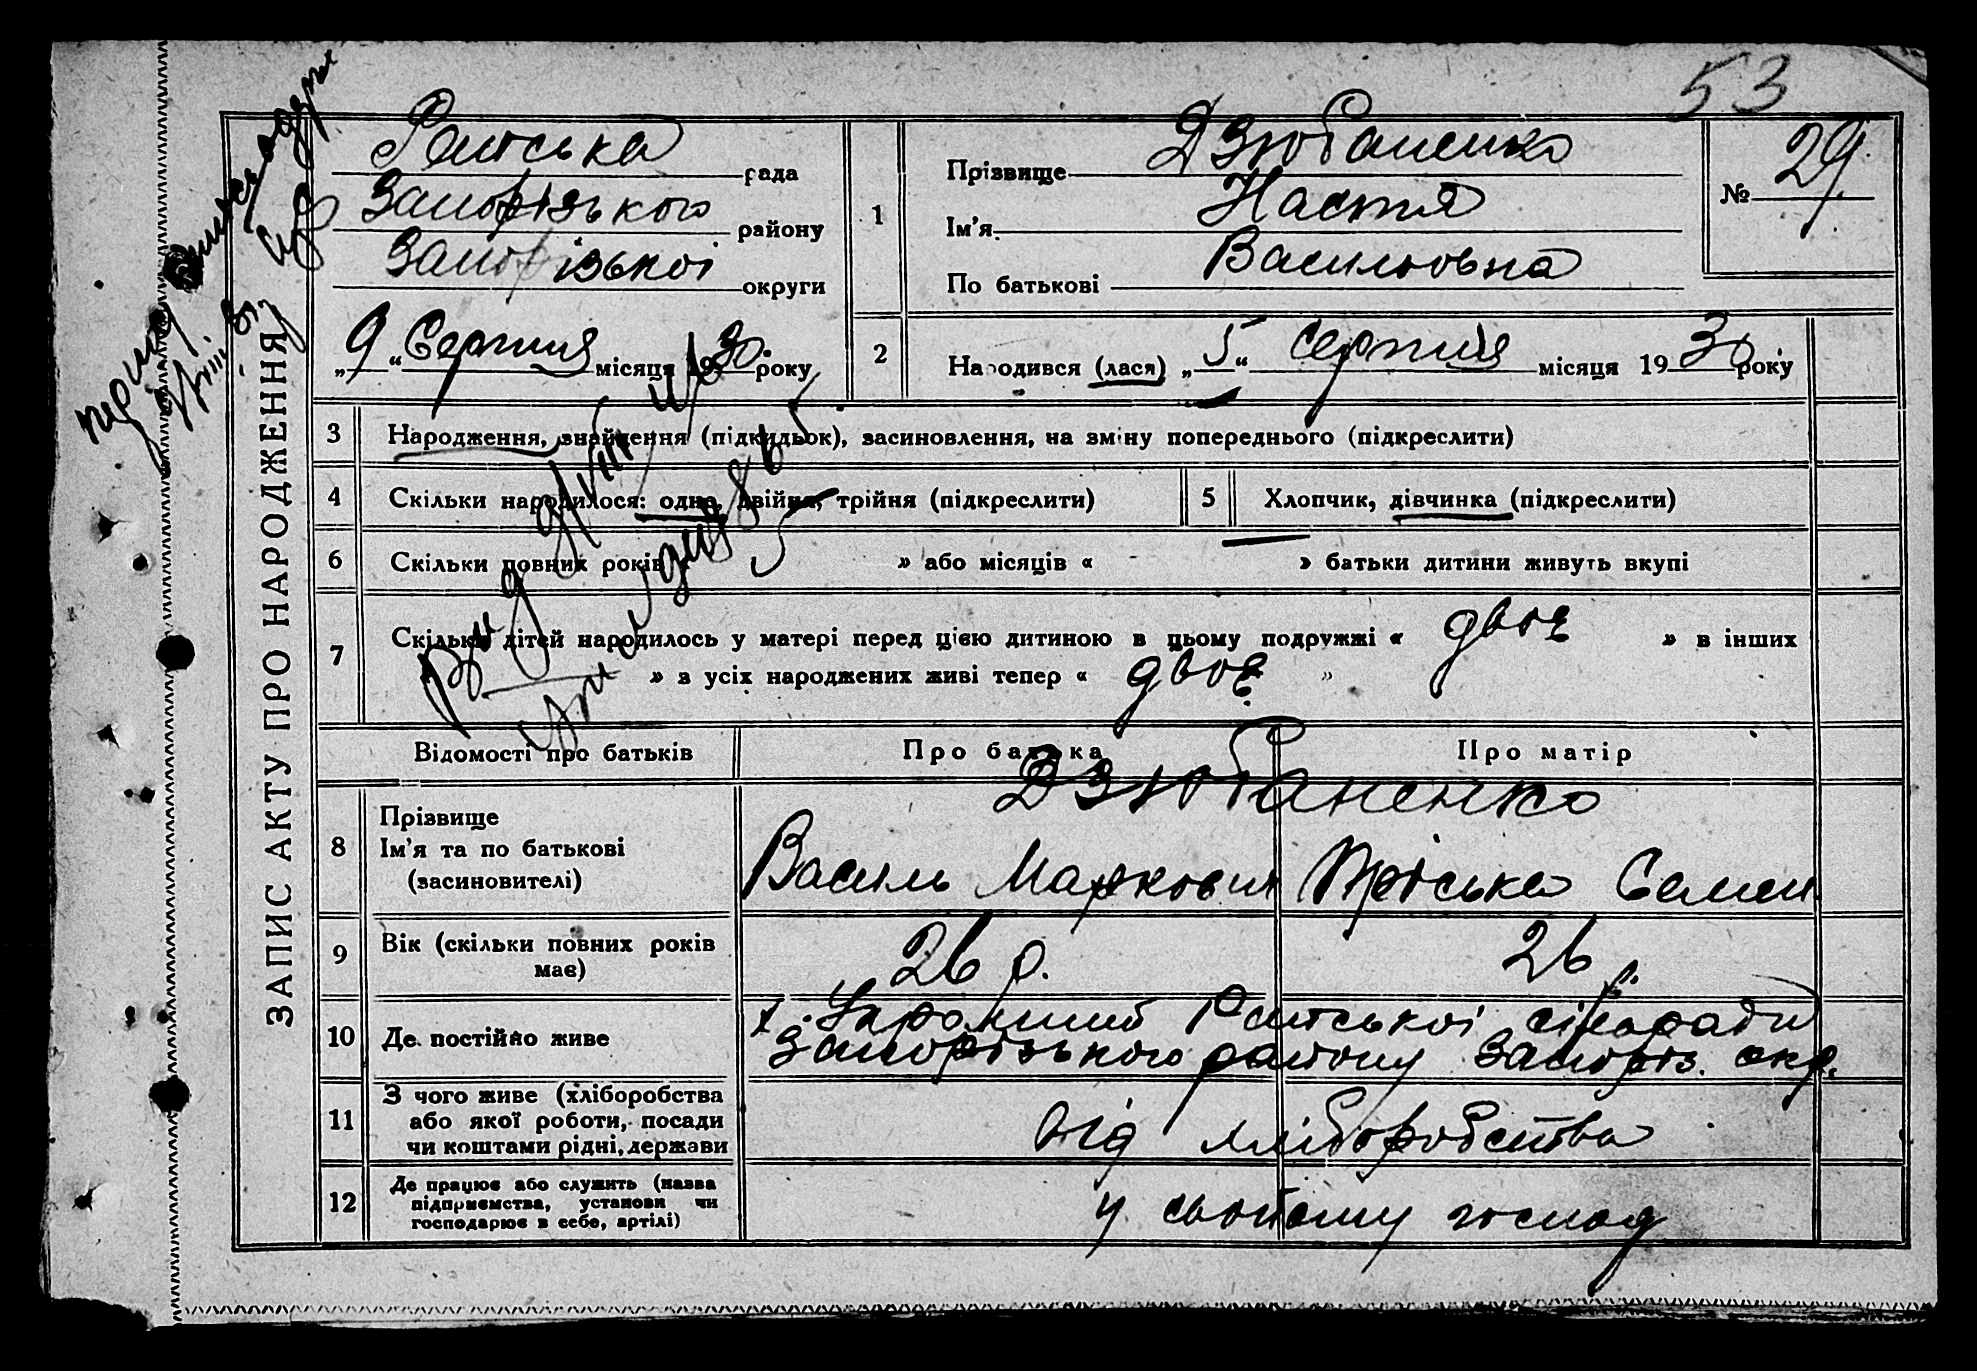 53
ЗАПИС АКТУ ПРО НАРОДЖЕННЯ
Раитська рада
Запорізького району
Запорізької округи
„9“ Серпня місяця 1930 року
1
Прізвище Дзюбаненко
Ім'я Настя
По батькові Васильовна
№ 29
2
Народився (лася) „5“ серпня місяця 1930 року
3 Народження, знайдення (підкидьок), засиновлення, на зміну попереднього (підкреслити)
4 Скільки народилося: одно, двійня, трійня (підкреслити)
5 Хлопчик, дівчинка (підкреслити)
6 Скільки повних років » або місяців « » батьки дитини живуть вкупі
7 Скільки дітей народилось у матері перед цією дитиною в цьому подружжі « двоє » в інших
» з усіх народжених живі тепер « двоє »
Відомості про батьків Про батька Про матір
Дзюбаненко
8 Прізвище
Ім'я та по батькові
(засиновителі)
Василь Маркович Пріська Семен
9 Вік (скільки повних років
має)
26 р. 26 р.
10 Де постійно живе
х. Раитської сільради
Запорізького району Запоріз. окр.
11 З чого живе (хліборобства
або якої роботи, посади
чи коштами рідні, держави
від хліборобства
12 Де працює або служить (назва
підприємства, установи чи
господарює в себе, артілі)
у свойому господ